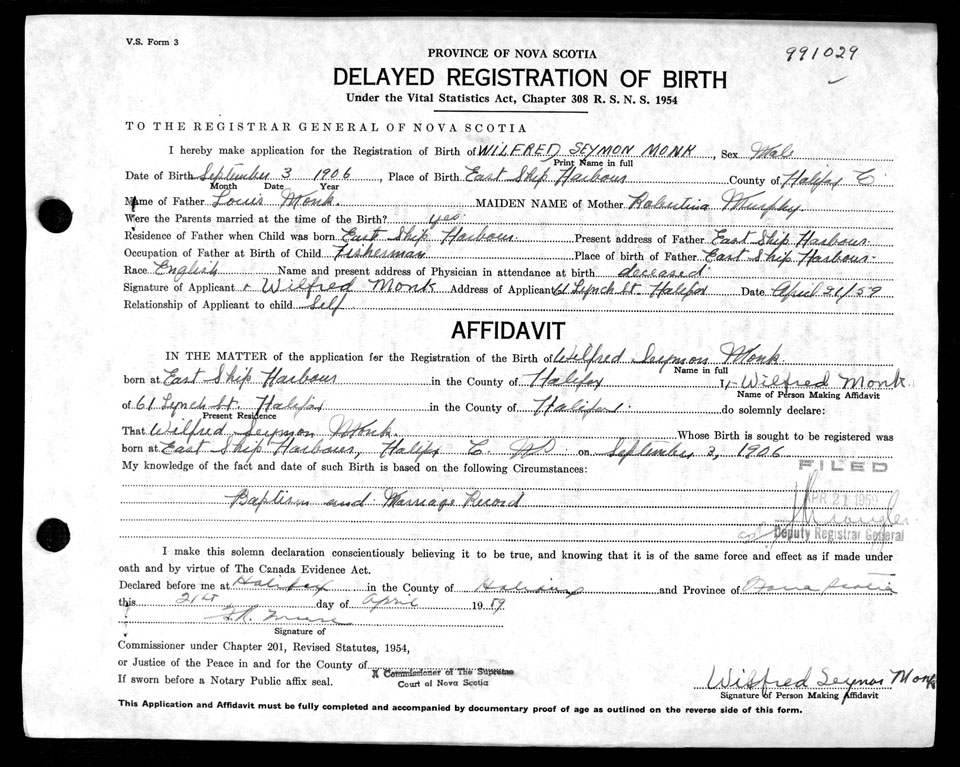 V.S. Form 3
991029
PROVINCE OF NOVA SCOTIA
DELAYED REGISTRATION OF BIRTH
Under the Vital Statistics Act, Chapter 308 R. S. N. S. 1954
TO THE REGISTRAR GENERAL OF NOVA SCOTIA
I hereby make application for the Registration of Birth of WILFRED SEYMON MONK, Sex Male
Print Name in full
Date of Birth September 3 1906, Place of Birth East Ship Harbour County of Halifax C
Month Date Year
Name of Father Louis Monk. MAIDEN NAME of Mother Robertina Murphy
Were the Parents married at the time of the Birth? yes
Residence of Father when Child was born East Ship Harbour Present address of Father East Ship Harbour.
Occupation of Father at Birth of Child Fisherman Place of birth of Father East Ship Harbour.
Race English Name and present address of Physician in attendance at birth deceased
Signature of Applicant Wilfred Monk Address of Applicant 61 Lynch St. Halifax Date April 21/59
Relationship of Applicant to child Self
AFFIDAVIT
IN THE MATTER of the application for the Registration of the Birth of Wilfred Seymon Monk.
Name in full
born at East Ship Harbour in the County of Halifax I, Wilfred Monk
Name of Person Making Affidavit
of 61 Lynch St. Halifax in the County of Halifax. do solemnly declare:
Present Residence
That Wilfred Seymon Monk. Whose Birth is sought to be registered was
born at East Ship Harbour, Halifax C. NS on September 3, 1906
My knowledge of the fact and date of such Birth is based on the following Circumstances:
FILED
APR 21 1959
Baptism and Marriage Record
Deputy Registrar General
I make this solemn declaration conscientiously believing it to be true, and knowing that it is of the same force and effect as if made under
oath and by virtue of The Canada Evidence Act.
Declared before me at Halifax in the County of Halifax and Province of Nova Scotia
this 21st day of April 19 59
Signature of
Commissioner under Chapter 201, Revised Statutes, 1954,
or Justice of the Peace in and for the County of
A Commissioner of The Supreme
If sworn before a Notary Public affix seal.
Court of Nova Scotia
Wilfred Seymon Monk
Signature of Person Making Affidavit
This Application and Affidavit must be fully completed and accompanied by documentary proof of age as outlined on the reverse side of this form.